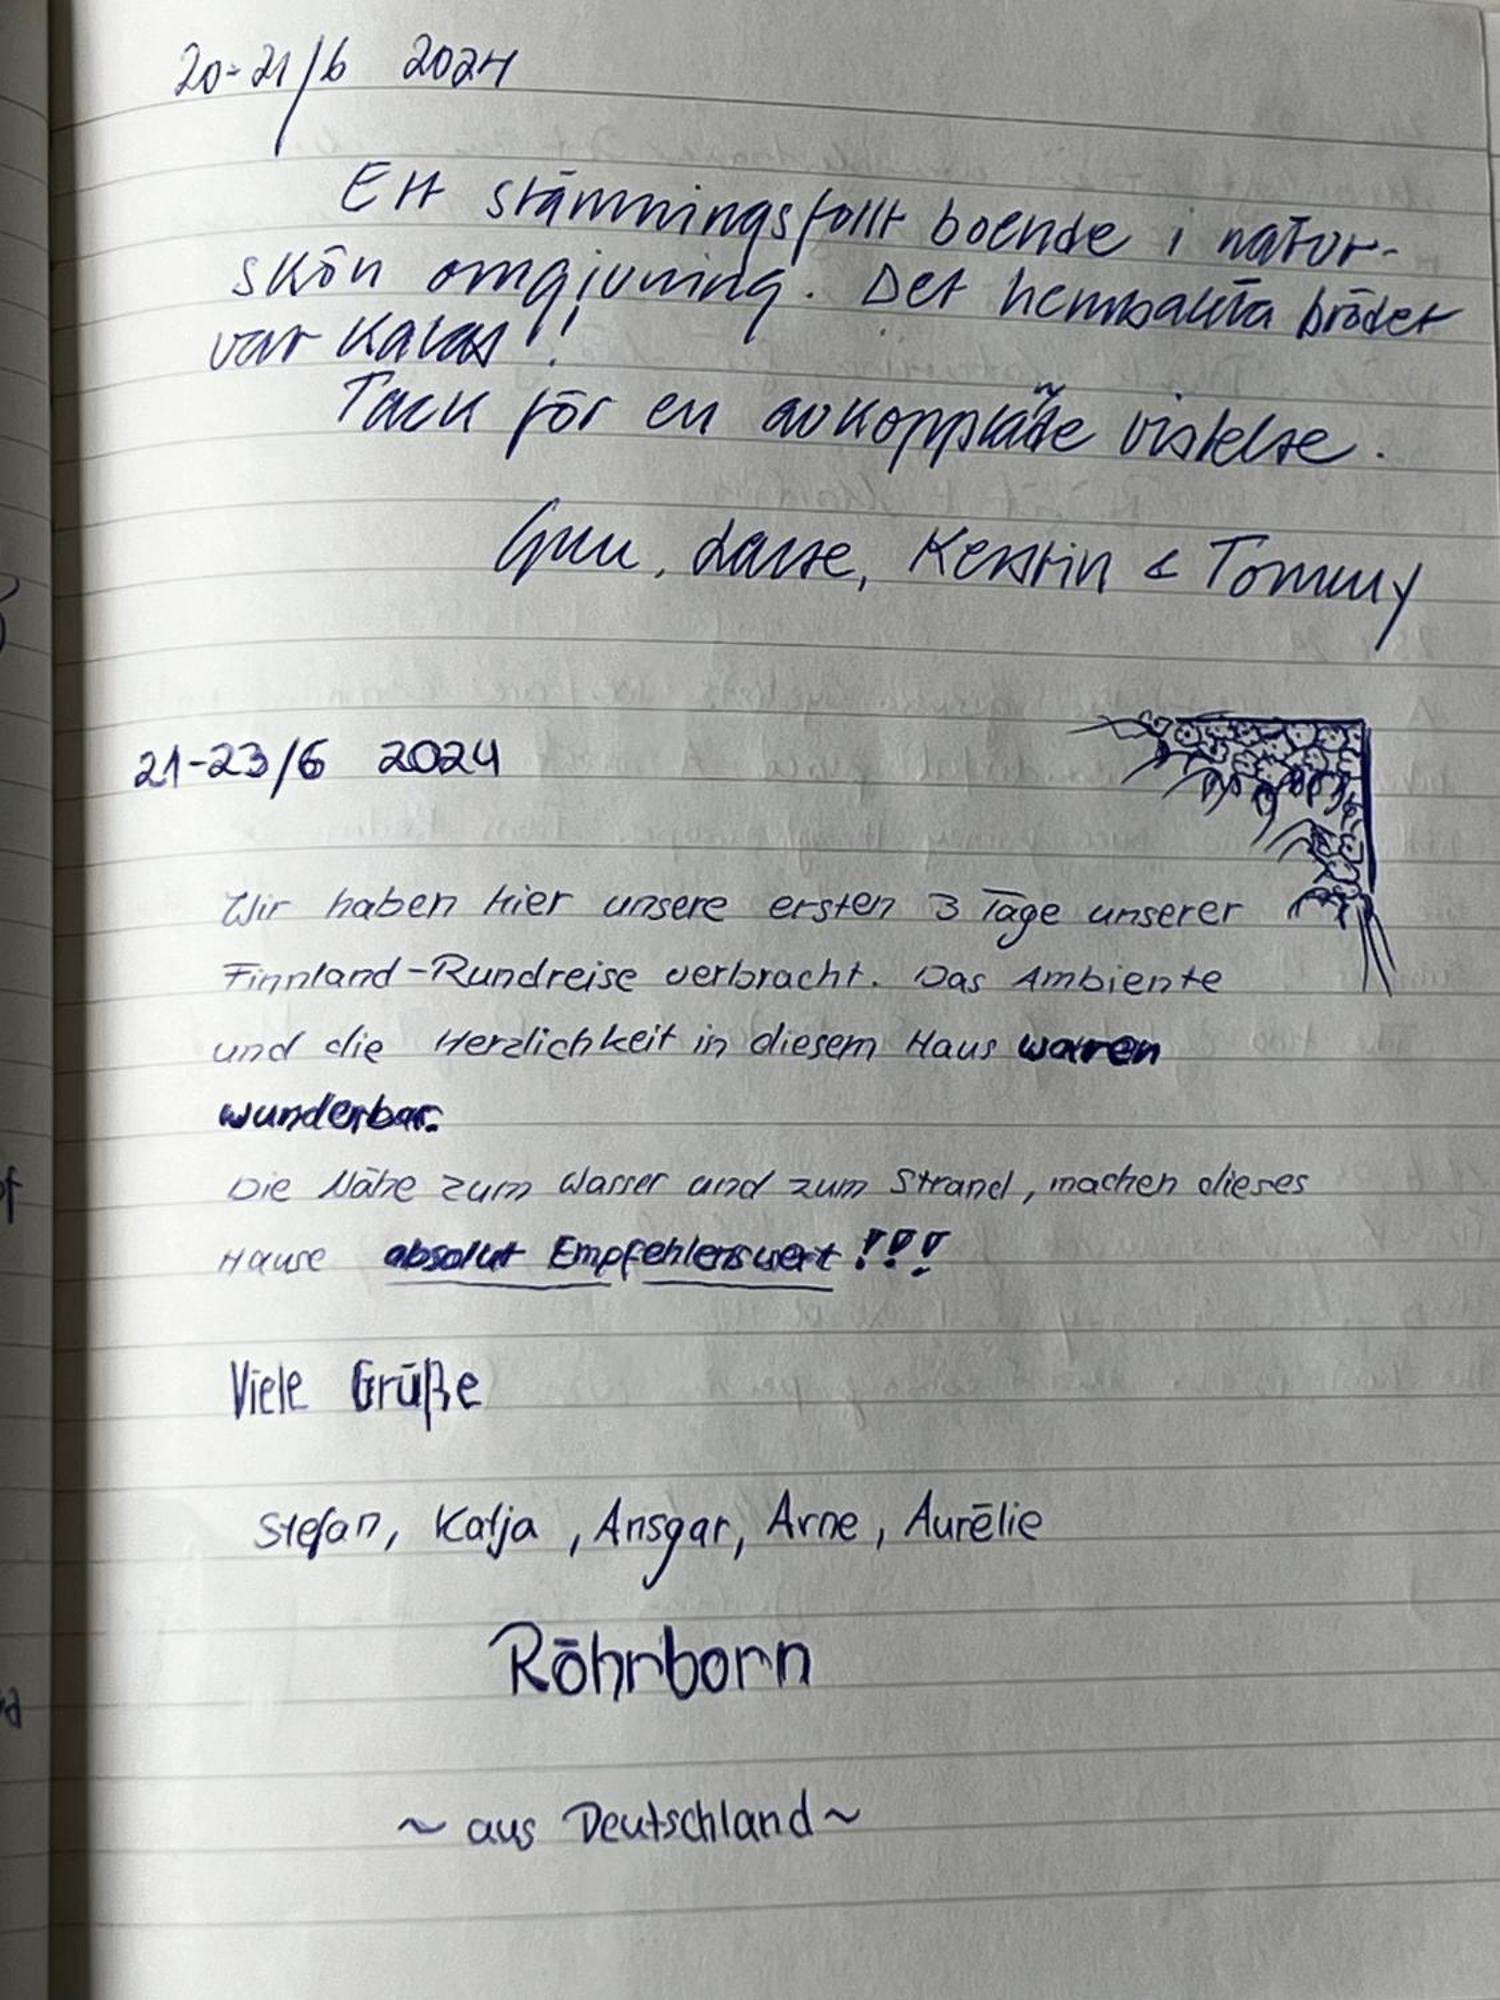 20-21/6 2024
Ett stämningsfullt boende i natur-
skön omgivning. Det hembakta brödet
var kalas!!
Tack för en avkopplande vistelse.
Gun, Lasse, Kerstin & Tommy
21-23/6 2024
Wir haben hier unsere ersten 3 Tage unserer
Finnland-Rundreise verbracht. Das Ambiente
und die Herzlichkeit in diesem Haus waren
wunderbar.
Die Nähe zum Wasser und zum Strand, machen dieses
Hause absolut Empfehlenswert !!!
Viele Grüße
Stefan, Katja, Ansgar, Arne, Aurélie
Röhrborn
~ aus Deutschland ~